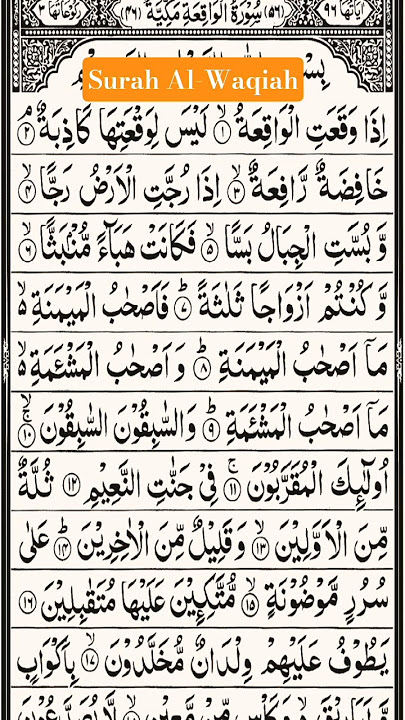 اٰیَاتُهَا ٩٦ (٥٦) سُوْرَةُ الْوَاقِعَةِ مَكِّيَّةٌ (٤٦) رُكُوْعَاتُهَا ٣
Surah Al-Waqiah
اِذَا وَقَعَتِ الْوَاقِعَةُ ۙ﴿١﴾ لَيْسَ لِوَقْعَتِهَا كَاذِبَةٌ ۘ﴿٢﴾
خَافِضَةٌ رَّافِعَةٌ ۙ﴿٣﴾ اِذَا رُجَّتِ الْاَرْضُ رَجًّا ۙ﴿٤﴾
وَّ بُسَّتِ الْجِبَالُ بَسًّا ۙ﴿٥﴾ فَكَانَتْ هَبَآءً مُّنْۢبَثًّا ۙ﴿٦﴾
وَّ كُنْتُمْ اَزْوَاجًا ثَلٰثَةً ؕ﴿٧﴾ فَاَصْحٰبُ الْمَيْمَنَةِ ۙ۬
مَاۤ اَصْحٰبُ الْمَيْمَنَةِ ؕ﴿٨﴾ وَ اَصْحٰبُ الْمَشْـَٔمَةِ ۙ۬
مَاۤ اَصْحٰبُ الْمَشْـَٔمَةِ ؕ﴿٩﴾ وَالسّٰبِقُوْنَ السّٰبِقُوْنَ ۚۙ﴿١٠﴾
اُولٰٓئِكَ الْمُقَرَّبُوْنَ ۚ﴿١١﴾ فِيْ جَنّٰتِ النَّعِيْمِ ﴿١٢﴾ ثُلَّةٌ
مِّنَ الْاَوَّلِيْنَ ۙ﴿١٣﴾ وَ قَلِيْلٌ مِّنَ الْاٰخِرِيْنَ ؕ﴿١٤﴾ عَلٰى
سُرُرٍ مَّوْضُوْنَةٍ ۙ﴿١٥﴾ مُّتَّكِـِٕيْنَ عَلَيْهَا مُتَقٰبِلِيْنَ ﴿١٦﴾
يَطُوْفُ عَلَيْهِمْ وِلْدَانٌ مُّخَلَّدُوْنَ ۙ﴿١٧﴾ بِاَكْوَابٍ